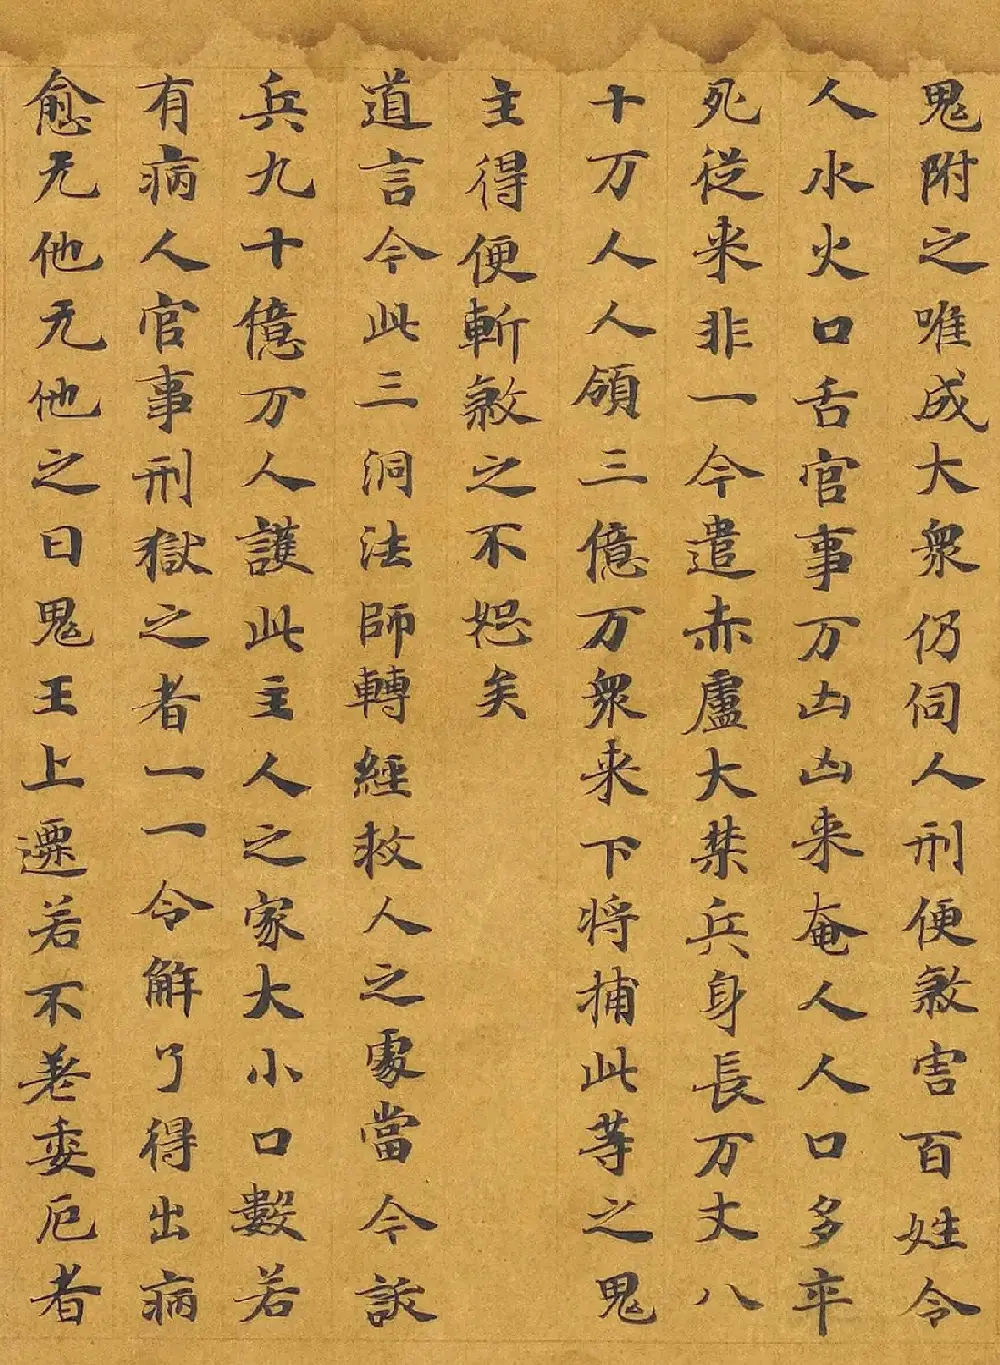 鬼附之唯成大衆仍伺人刑便煞害百姓令
人水火口舌官事万凶凶来奄人人口多卒
死従来非一今遣赤盧大禁兵身長万丈八
十万人人領三億万衆来下将捕此等之鬼
主得便斬煞之不恕矣
道言今此三洞法師轉經救人之處當令
兵九十億万人護此主人之家大小口數若
有病人官事刑獄之者一一令解了得出病
愈无他无他之日鬼王上遷若不差委厄者